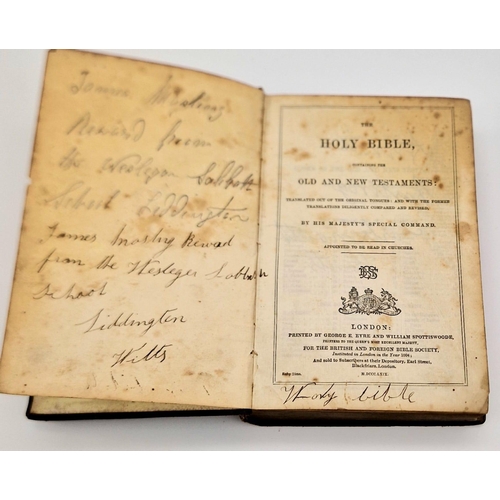 James
Reward from
the Wesleyan Sabbath
School Liddington
James Reward
from the Wesleyer Sabbath
School
Liddington
Wilts
THE
HOLY BIBLE,
CONTAINING THE
OLD AND NEW TESTAMENTS:
TRANSLATED OUT OF THE ORIGINAL TONGUES; AND WITH THE FORMER
TRANSLATIONS DILIGENTLY COMPARED AND REVISED,
BY HIS MAJESTY'S SPECIAL COMMAND.
APPOINTED TO BE READ IN CHURCHES.
LONDON:
PRINTED BY GEORGE E. EYRE AND WILLIAM SPOTTISWOODE,
PRINTERS TO THE QUEEN'S MOST EXCELLENT MAJESTY,
FOR THE BRITISH AND FOREIGN BIBLE SOCIETY,
Instituted in London in the Year 1804;
And sold to Subscribers at their Depository, Earl Street,
Blackfriars, London.
Ruby 12mo.
Holy bible